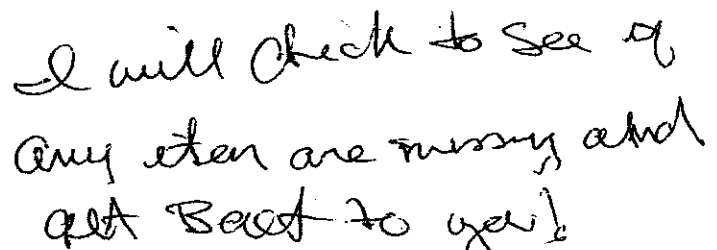 I will check to see if
any item are missing and
get Back to you!